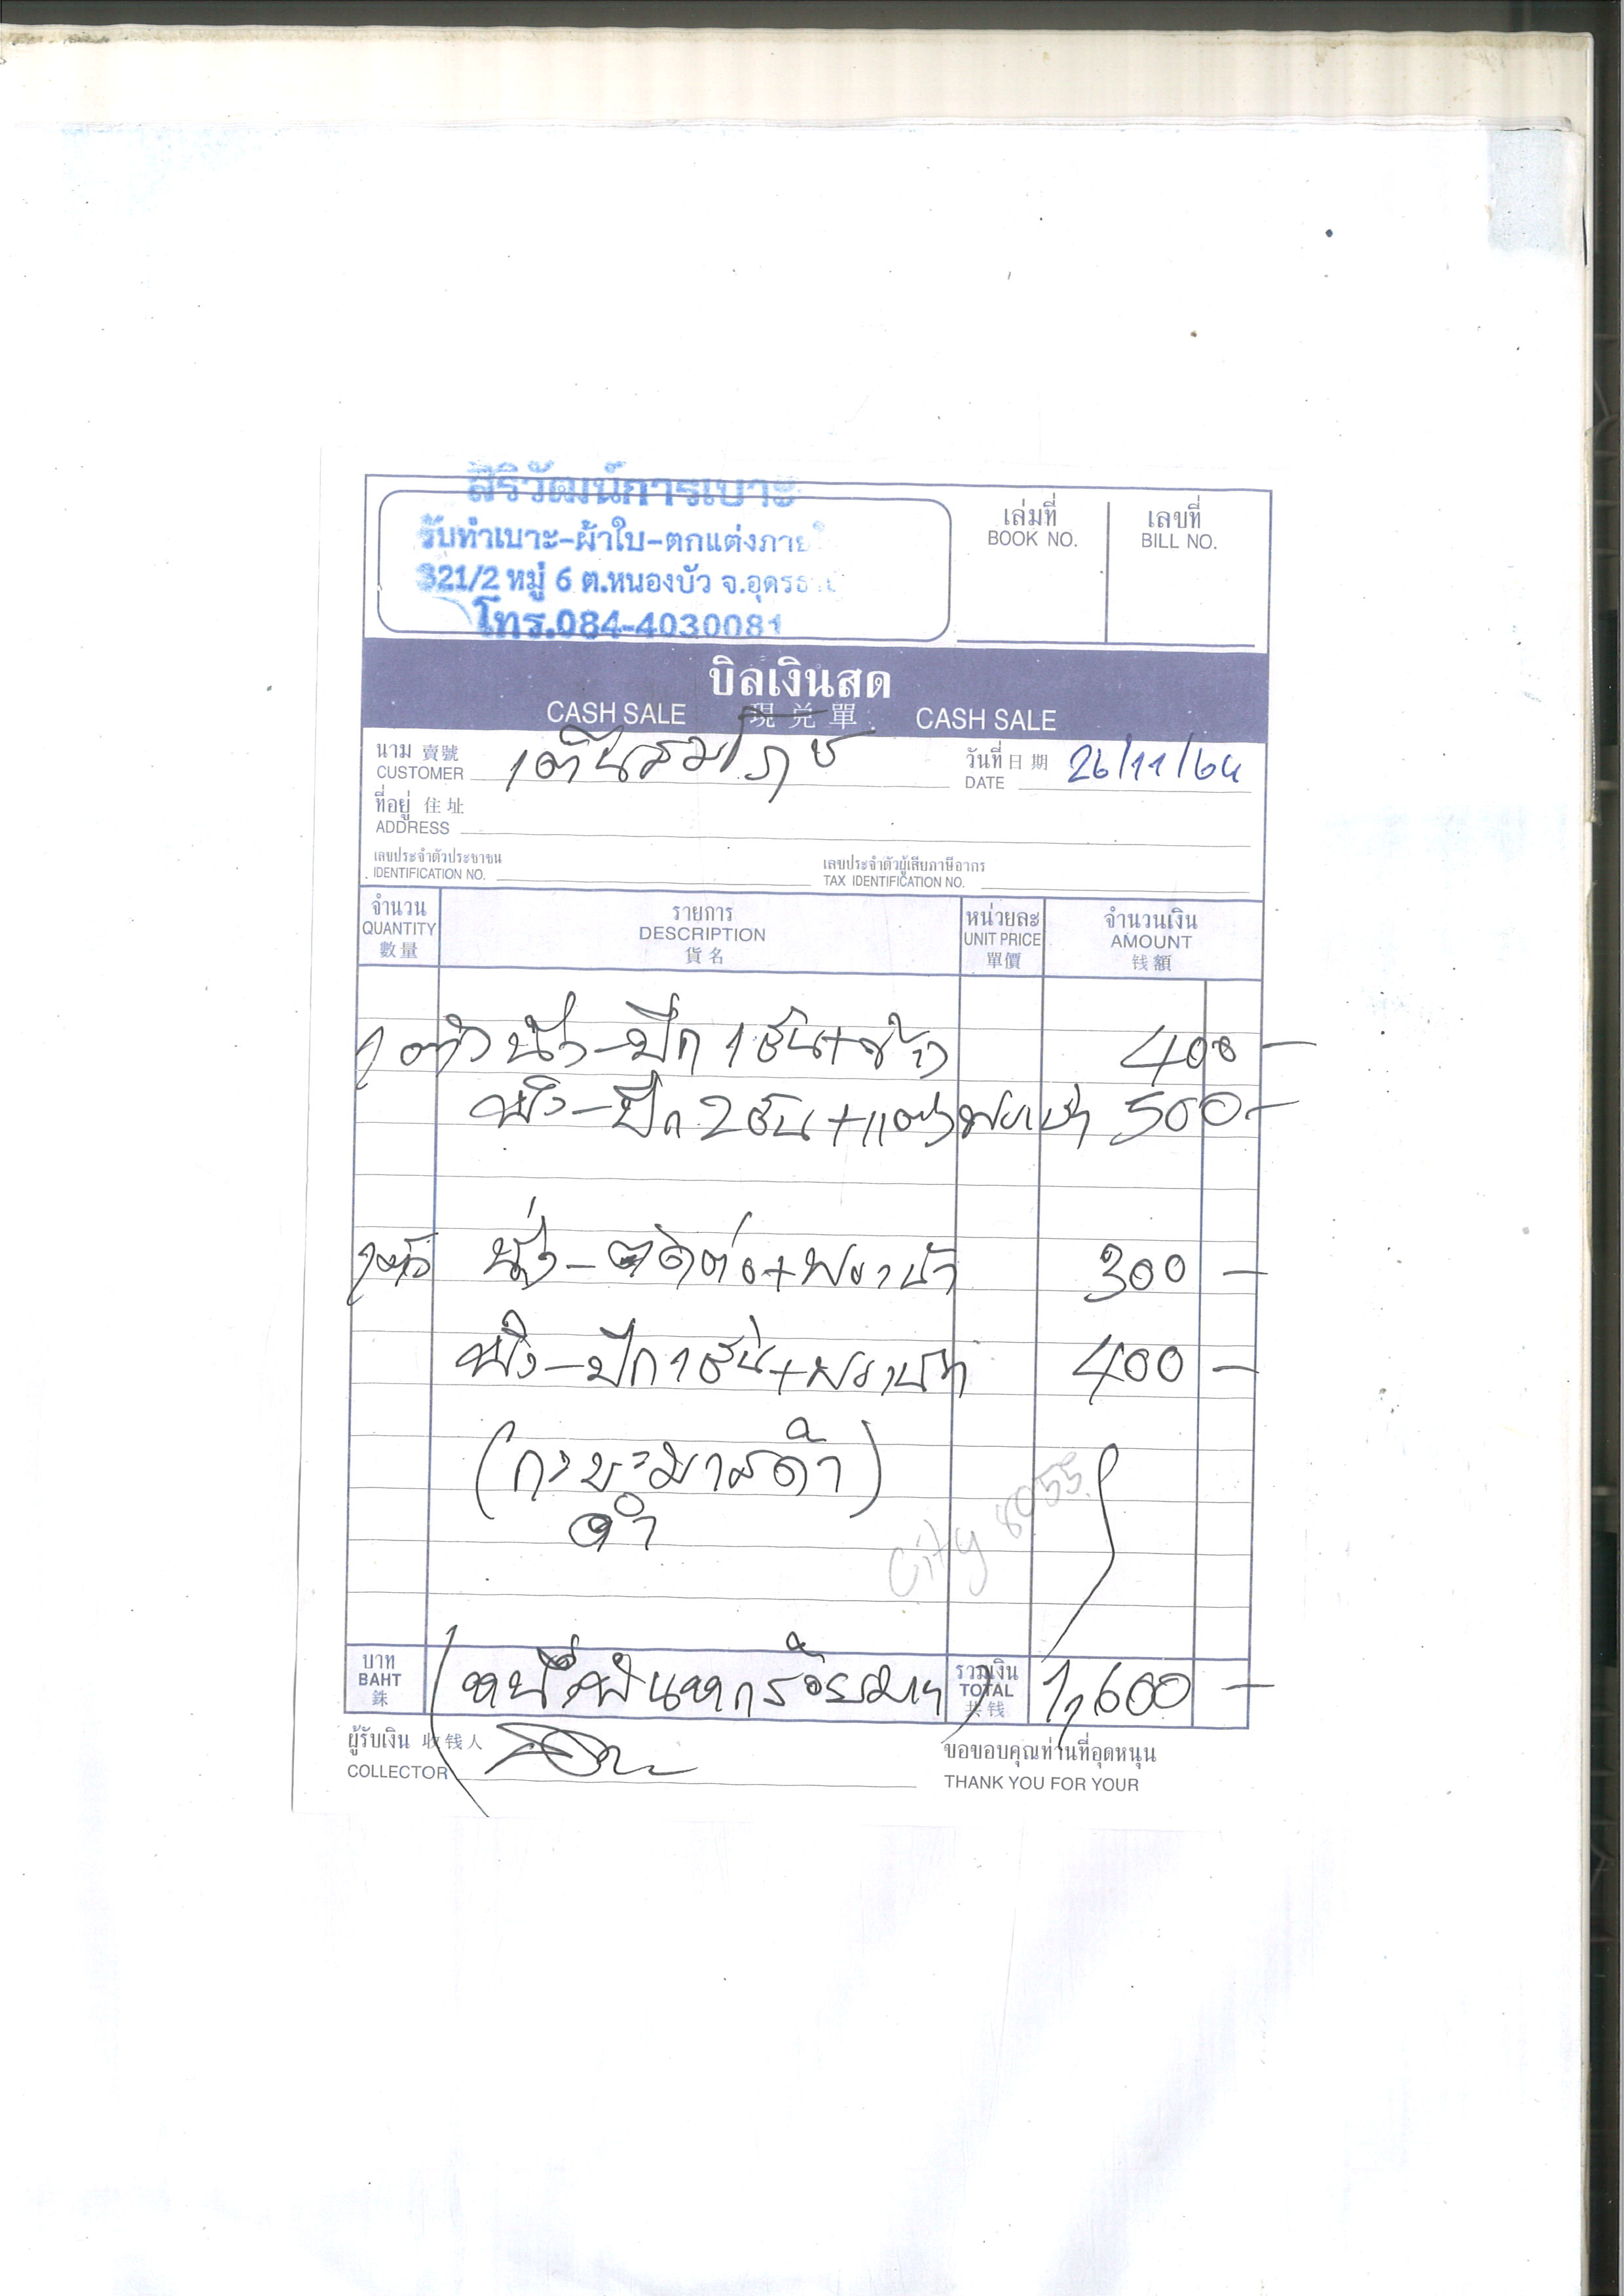 สิริวัฒน์การเบาะ
รับทำเบาะ-ผ้าใบ-ตกแต่งภายใ
321/2 หมู่ 6 ต.หนองบัว จ.อุดรธานี
โทร.084-4030081
เล่มที่ เลขที่
BOOK NO. BILL NO.
บิลเงินสด
CASH SALE 現兌單 CASH SALE
นาม 賣號 วันที่ 日期 26/11/64
CUSTOMER DATE
ที่อยู่ 住址
ADDRESS
เลขประจำตัวประชาชน เลขประจำตัวผู้เสียภาษีอากร
IDENTIFICATION NO. TAX IDENTIFICATION NO.
จำนวน รายการ หน่วยละ จำนวนเงิน
QUANTITY DESCRIPTION UNIT PRICE AMOUNT
數量 貨名 單價 钱額
1 ตัว นั่ง-ปีก 1 ชั้น+ 400 -
พิง-ปีก 2 ชั้น + 500 -
1 ตัว นั่ง-ตัดต่อ+ 300 -
พิง-ปีก 1 ชั้น+ 400 -
ดำ
City 8055
บาท รวมเงิน
BAHT (หนึ่งพันหกร้อยบาท) TOTAL 1,600 -
銖 共钱
ผู้รับเงิน 收钱人 ขอขอบคุณท่านที่อุดหนุน
COLLECTOR THANK YOU FOR YOUR